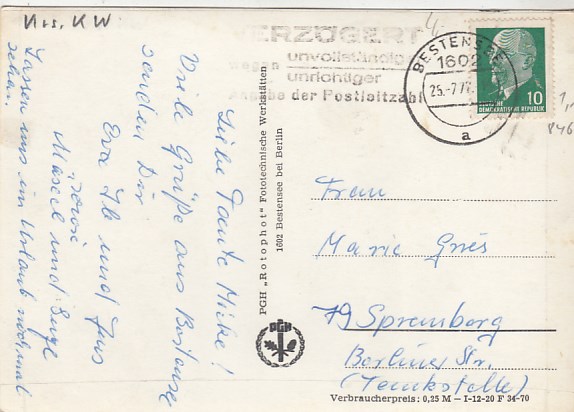 Nrs. KW
VERZÖGERT
wegen
unvollständig
unrichtiger
Angabe der Postleitzahl
BESTENSEE
1602
25.-7.77.
a
DEUTSCHE
DEMOKRATISCHE REPUBLIK
10
Liebe Tante Mieke!
Viele Grüße aus Bestensee
senden Dir
Eva, Ilse und Jens
Marcel und Inge
Lassen uns im Urlaub nochmal
sehen.
PGH „Rotophot" Fototechnische Werkstätten
1602 Bestensee bei Berlin
PGH
Frau
Marie Gries
79 Spremberg
Berliner Str.
(Tankstelle)
Verbraucherpreis: 0,25 M – I-12-20 F 34-70